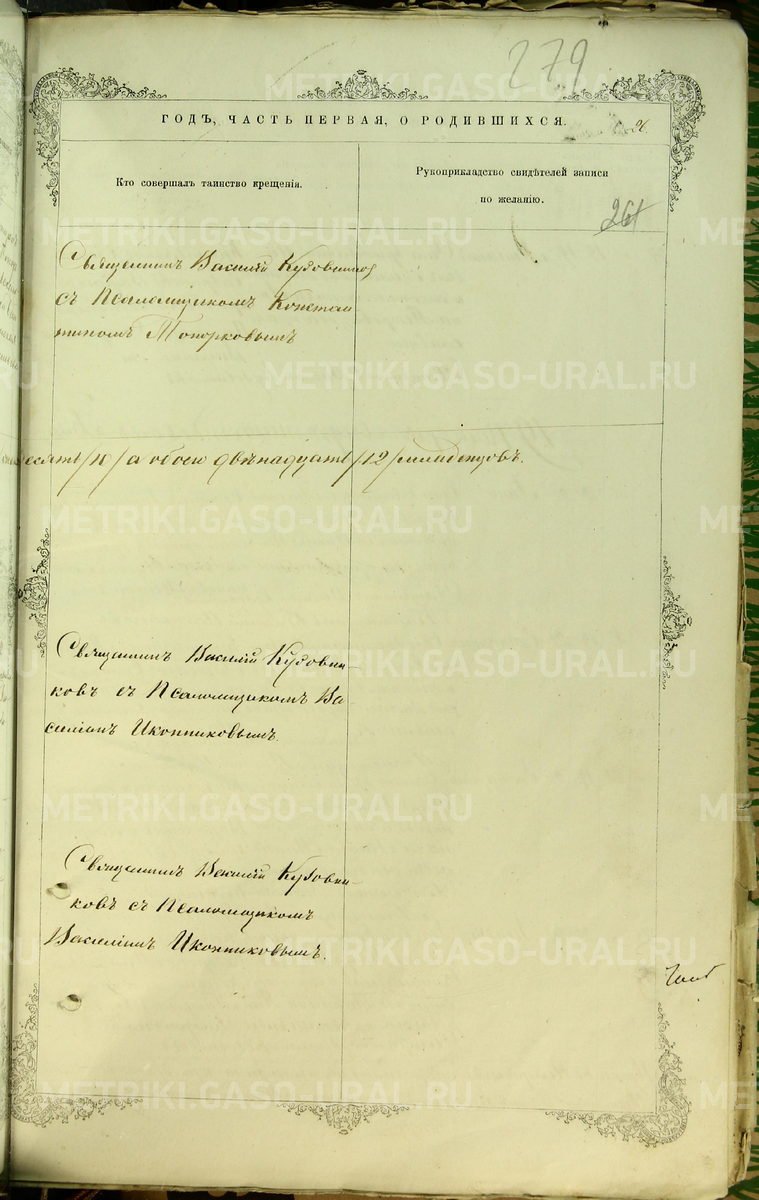 279
ГОДЪ, ЧАСТЬ ПЕРВАЯ, О РОДИВШИХСЯ.
Кто совершалъ таинство крещенія.
Рукоприкладство свидѣтелей записи
по желанію.
261
Священникъ Василій Кудовников
съ Псаломщикомъ Констан
тиномъ Топорковымъ
/10/ а обоего двѣнадцать /12/ младенцовъ.
Священникъ Василій Кудовни-
ковъ съ Псаломщикомъ Ва-
силіемъ Иконниковымъ.
Священникъ Василій Кудовни-
ковъ съ Псаломщикомъ
Василіемъ Иконниковымъ.
METRIKI.GASO-URAL.RU